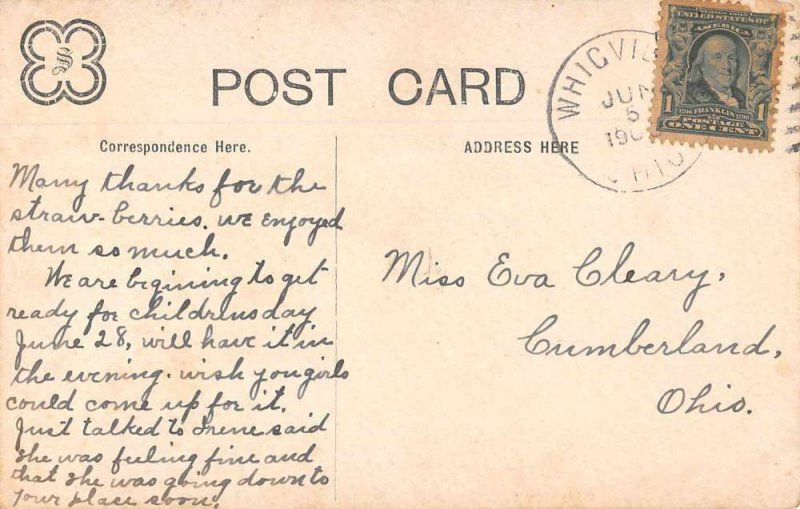 S
POST CARD
WHIGVIL
JUN
5
190
OHIO
UNITED STATES OF
AMERICA
1 1
1706 FRANKLIN 1790
POSTAGE
ONE CENT
Correspondence Here.
ADDRESS HERE
Many thanks for the
straw-berries. we enjoyed
them so much.
We are begining to get
ready for childrens day
June 28, will have it in
the evening. wish you girls
could come up for it.
Just talked to Irene said
she was feeling fine and
that she was going down to
your place soon.
Miss Eva Cleary,
Cumberland,
Ohio.